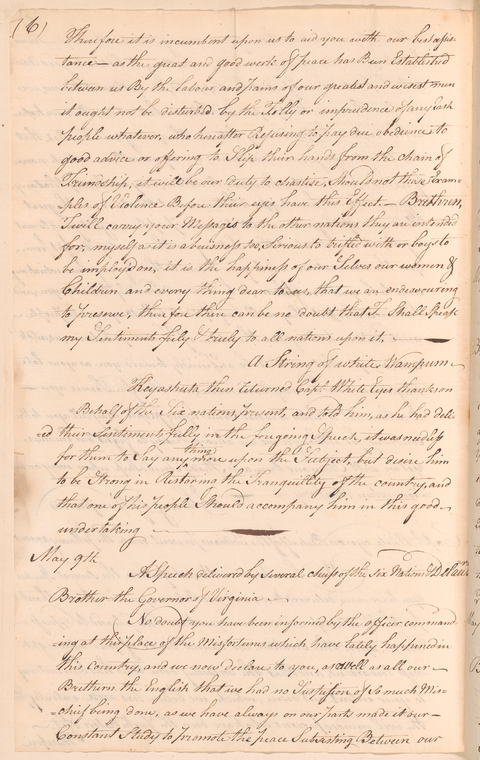 (6)
Therefore it is incumbent upon us to aid you with our best assis
tance — as the great and good work of peace has Been Established
between us By the labour and pains of our greatest and wisest men
it ought not be disturbed by the Folly or imprudence of any Rash
people whatever, who hereafter Refusing to pay due obedience to
good advice or offering to Slip their hands from the chain of
Friendship, it will be our duty to chastise, Should not these Exam
ples of Violence Before their eyes have this Effect — Brethren,
I will carry your Messages to the other nations they are intended
for, myself as it is a buisness too Serious to trifle with or boys to
be imployd on, it is the happiness of our Selves our women &
Children and every thing dear to us, that we are endeavouring
to preserve, therefore there can be no doubt that I Shall Speak
my Sentiments fully & truely to all nations upon it.
A String of white Wampum
Keyashuta then returned Capt. White Eyes thanks on
Behalf of the Six nations, present, and told him, as he had deli
ed their Sentiments fully in the foregoing Speech, it was needless
for them to Say any thing more upon the Subject, but desire him
to be Strong in Restoring the Tranquillity of the country, and
that one of his people Should accompany him in this good
undertaking
May 9th
A Speech delivered by Several chiefs of the Six Nations & Delawr
Brother the Governor of Virginia
No doubt you have been informed by the officer command
=ing at this place of the Misfortunes which have lately happened in
this Country, and we now declare to you, as well as all our
Brethern the English that we had no Suspision of So much Mis=
=chief being done, as we have always on our parts made it our
Constant Study to promote the peace Subsisting Between our